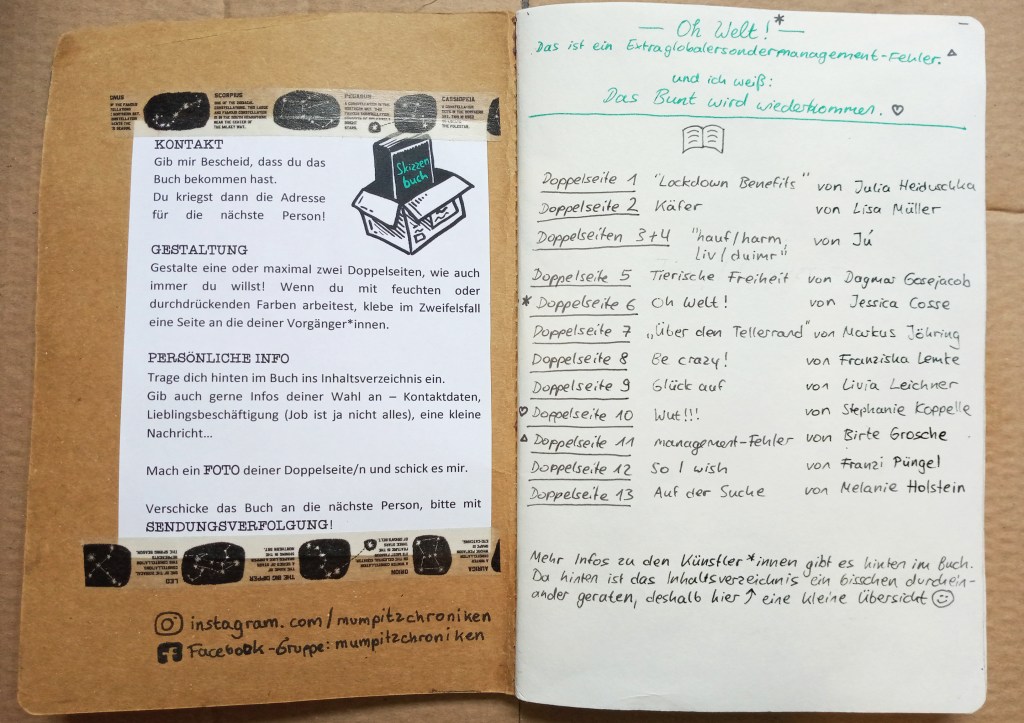 SCORPIUS
PEGASUS
CASSIOPEIA
KONTAKT
Gib mir Bescheid, dass du das
Buch bekommen hast.
Du kriegst dann die Adresse
für die nächste Person!
Skizzen
buch
GESTALTUNG
Gestalte eine oder maximal zwei Doppelseiten, wie auch
immer du willst! Wenn du mit feuchten oder
durchdrückenden Farben arbeitest, klebe im Zweifelsfall
eine Seite an die deiner Vorgänger*innen.
PERSÖNLICHE INFO
Trage dich hinten im Buch ins Inhaltsverzeichnis ein.
Gib auch gerne Infos deiner Wahl an – Kontaktdaten,
Lieblingsbeschäftigung (Job ist ja nicht alles), eine kleine
Nachricht...
Mach ein FOTO deiner Doppelseite/n und schick es mir.
Verschicke das Buch an die nächste Person, bitte mit
SENDUNGSVERFOLGUNG!
LEO
THE BIG DIPPER
ORION
AURIGA
instagram.com/mumpitzchroniken
Facebook-Gruppe: mumpitzchroniken
— Oh Welt!* —
Das ist ein Extraglobalersondermanagement-Fehler. △
und ich weiß:
Das Bunt wird wiederkommen. ♡
Doppelseite 1 "Lockdown Benefits" von Julia Heiduschka
Doppelseite 2 Käfer von Lisa Müller
Doppelseiten 3+4 "hauf/harm, von Jú
liv/duimr"
Doppelseite 5 Tierische Freiheit von Dagmar Gosejacob
* Doppelseite 6 Oh Welt! von Jessica Cosse
Doppelseite 7 „Über den Tellerrand" von Markus Jöhring
Doppelseite 8 Be crazy! von Franziska Lemke
Doppelseite 9 Glück auf von Livia Leichner
♡ Doppelseite 10 Wut!!! von Stephanie Koppelle
△ Doppelseite 11 management-Fehler von Birte Grosche
Doppelseite 12 So I wish von Franzi Püngel
Doppelseite 13 Auf der Suche von Melanie Holstein
Mehr Infos zu den Künstler*innen gibt es hinten im Buch.
Da hinten ist das Inhaltsverzeichnis ein bisschen durchein-
ander geraten, deshalb hier ↑ eine kleine Übersicht ☺